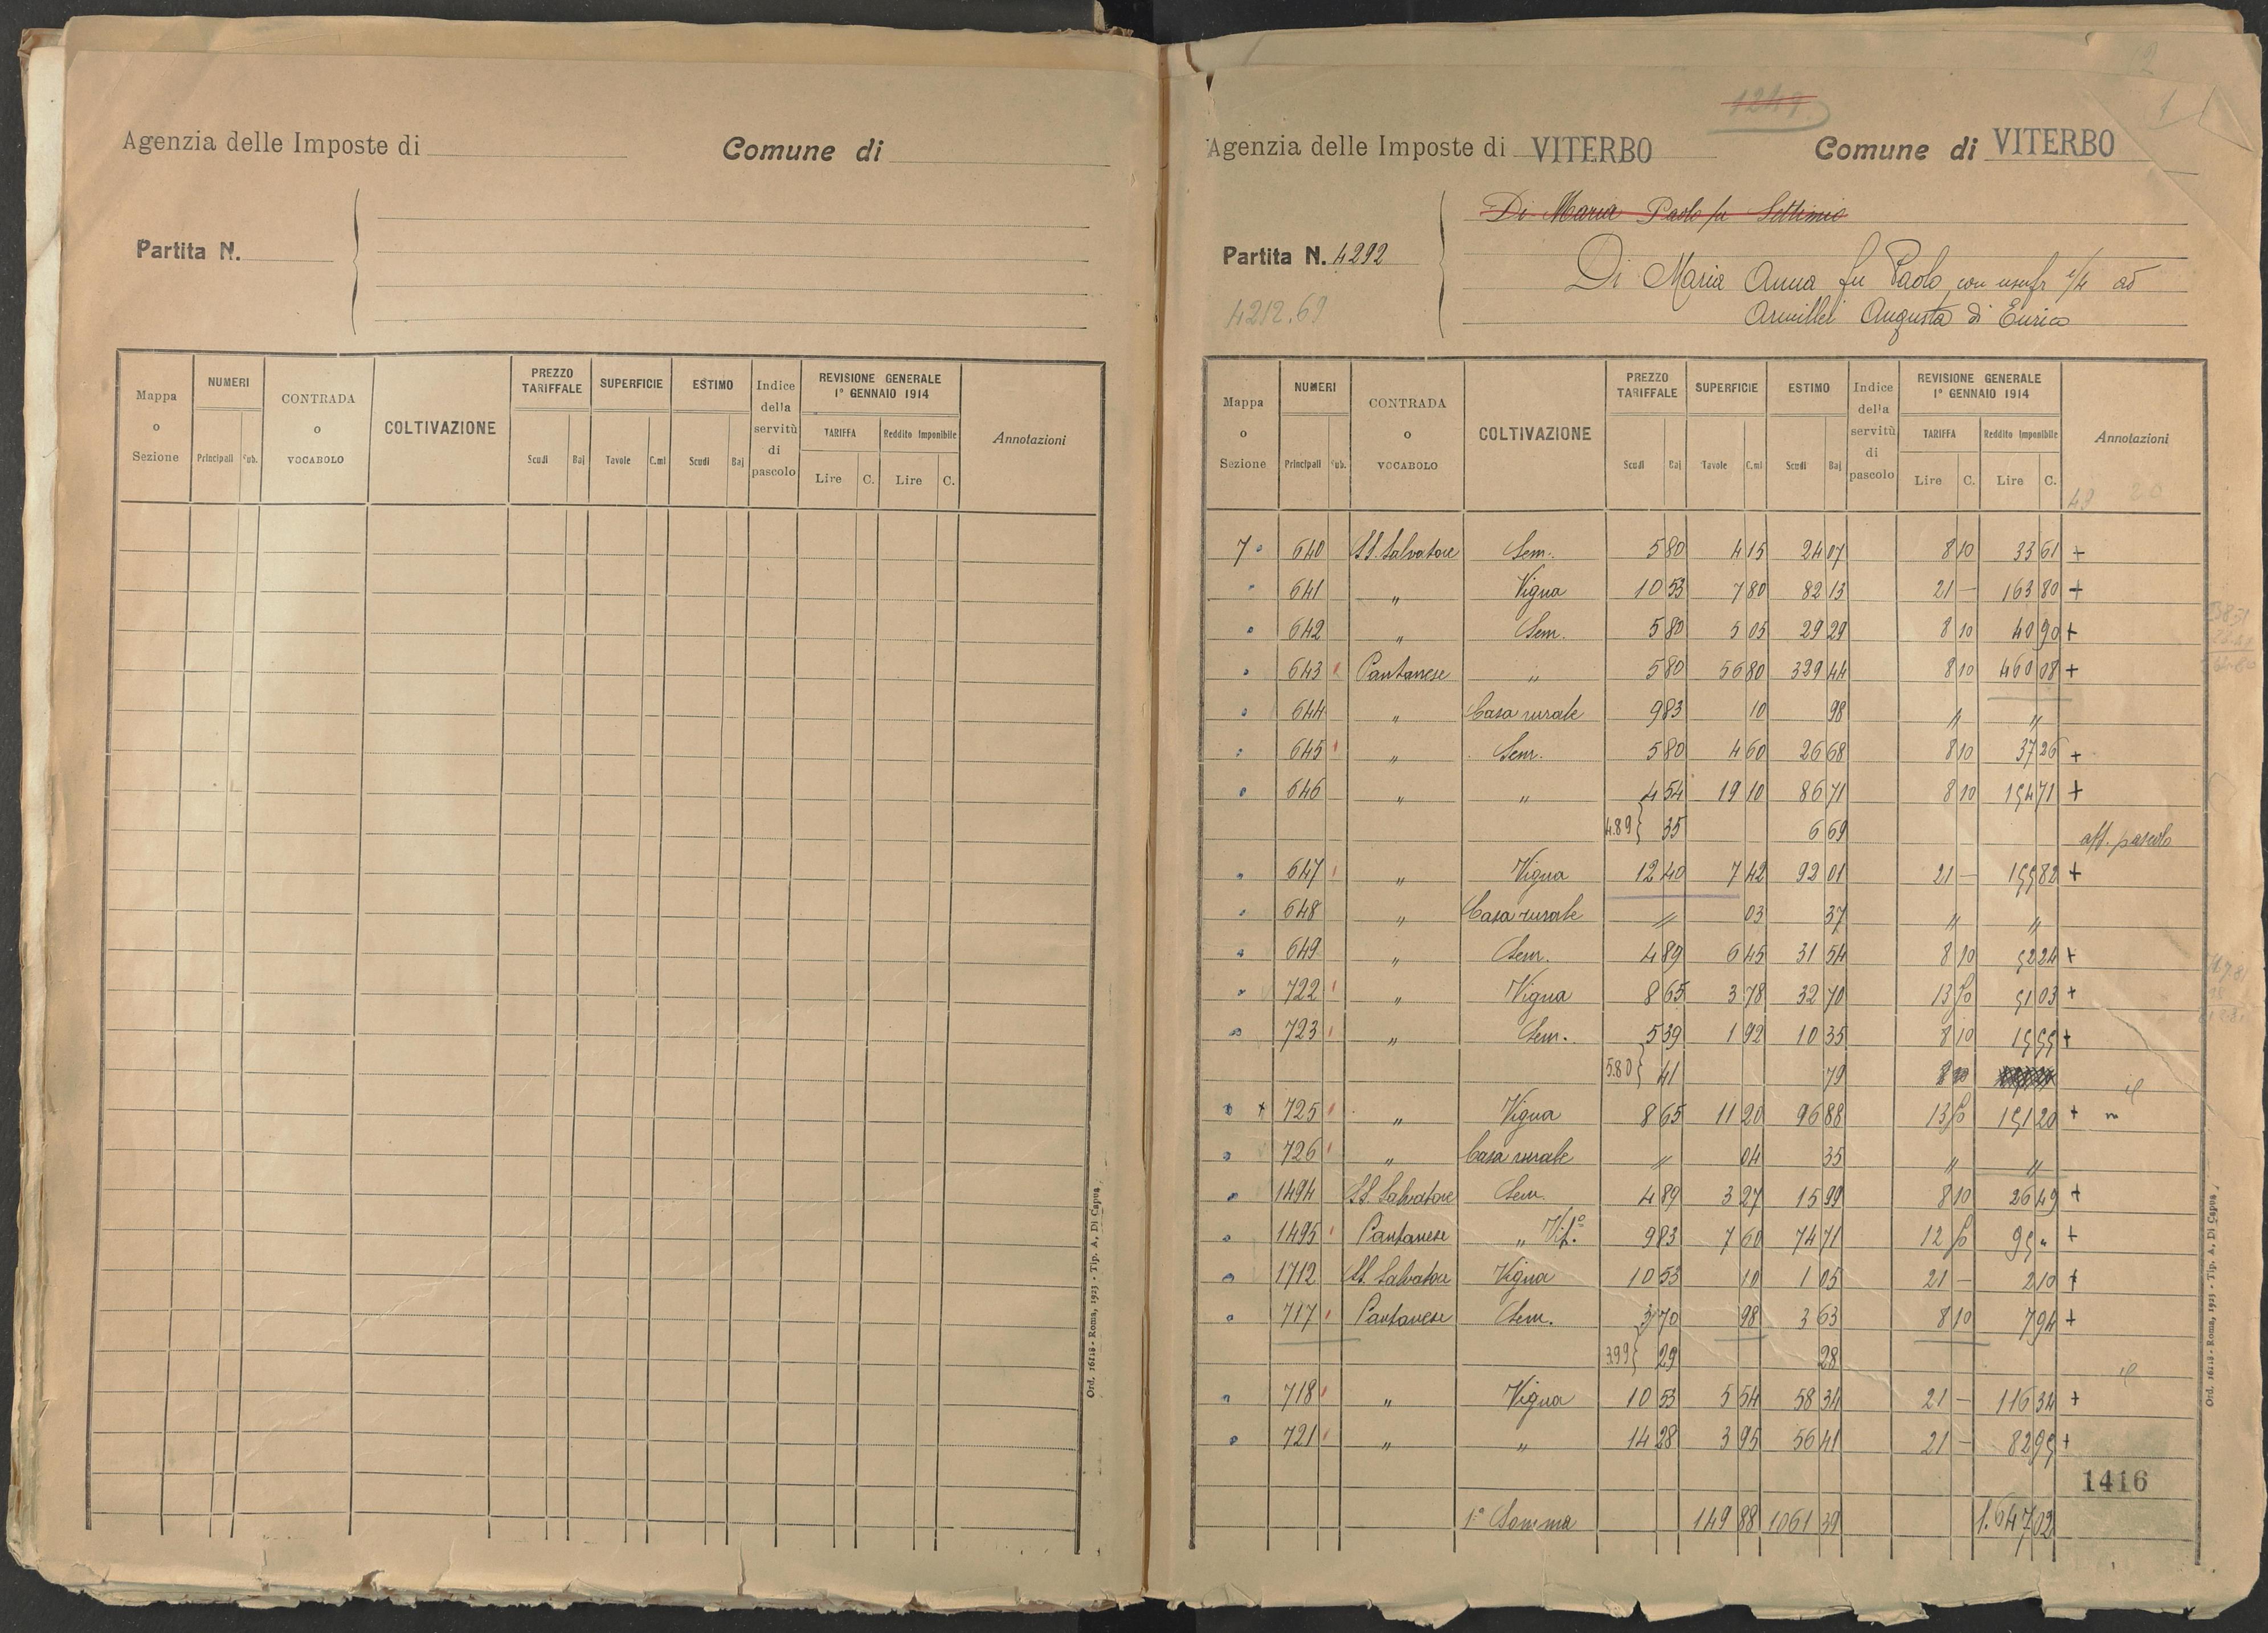 Agenzia delle Imposte di
Comune di
Partita N.
Mappa o Sezione | NUMERI Principali Sub. | CONTRADA O VOCABOLO | COLTIVAZIONE | PREZZO TARIFFALE Scudi Baj | SUPERFICIE Tavole C.mi | ESTIMO Scudi Baj | Indice della servitù di pascolo | REVISIONE GENERALE 1° GENNAIO 1914 TARIFFA Lire C. Reddito Imponibile Lire C. | Annotazioni
Ord. 16118 - Roma, 1923 - Tip. A. Di Capua
1247
Agenzia delle Imposte di VITERBO
Comune di VITERBO
Di Maria Paolo fu Settimio
Partita N. 4292
Di Maria Anna fu Paolo, con usufr 1/4 ad
4212.69
Augusta di Enrico
Mappa o Sezione | NUMERI Principali Sub. | CONTRADA O VOCABOLO | COLTIVAZIONE | PREZZO TARIFFALE Scudi Baj | SUPERFICIE Tavole C.mi | ESTIMO Scudi Baj | Indice della servitù di pascolo | REVISIONE GENERALE 1° GENNAIO 1914 TARIFFA Lire C. Reddito Imponibile Lire C. | Annotazioni
49 20
7 " 640 SS. Salvatore Sem. 5 80 4 15 24 07 8 10 33 61 +
" 641 " Vigna 10 53 7 80 82 13 21 — 163 80 +
" 642 " Sem. 5 80 5 05 29 29 8 10 40 90 +
" 643 Pantanese " 5 80 56 80 329 44 8 10 460 08 +
" 644 " Casa rurale 9 83 10 98 " "
" 645 " Sem. 5 80 4 60 26 68 8 10 37 26 +
" 646 " " 4 54 19 10 86 71 8 10 154 71 +
4.89 } 35 6 69 aff. pascolo
" 647 " Vigna 12 40 7 42 92 01 21 — 155 82 +
" 648 " Casa rurale " 03 37 " "
" 649 " Sem. 4 89 6 45 31 54 8 10 52 24 +
" 722 " Vigna 8 65 3 78 32 70 13 50 51 03 +
" 723 " Sem. 5 39 1 92 10 35 8 10 15 55 +
5.80 } 41 79 8 10
" + 725 " Vigna 8 65 11 20 96 88 13 50 151 20 +
" 726 " Casa rurale " 04 35 " "
" 1494 SS. Salvatore Sem. 4 89 3 27 15 99 8 10 26 49 +
" 1495 Pantanese " Vit.° 9 83 7 60 74 71 12 50 95 " +
" 1712 SS. Salvatore Vigna 10 53 10 1 05 21 — 2 10 +
" 717 Pantanese Sem. 3 70 98 3 63 8 10 7 94 +
3.99 } 29 28
" 718 " Vigna 10 53 5 54 58 34 21 — 116 34 +
" 721 " " 14 28 3 95 56 41 21 — 82 95 +
1416
1° Somma 149 88 1061 39 1.647 02
Ord. 16118 - Roma, 1923 - Tip. A. Di Capua